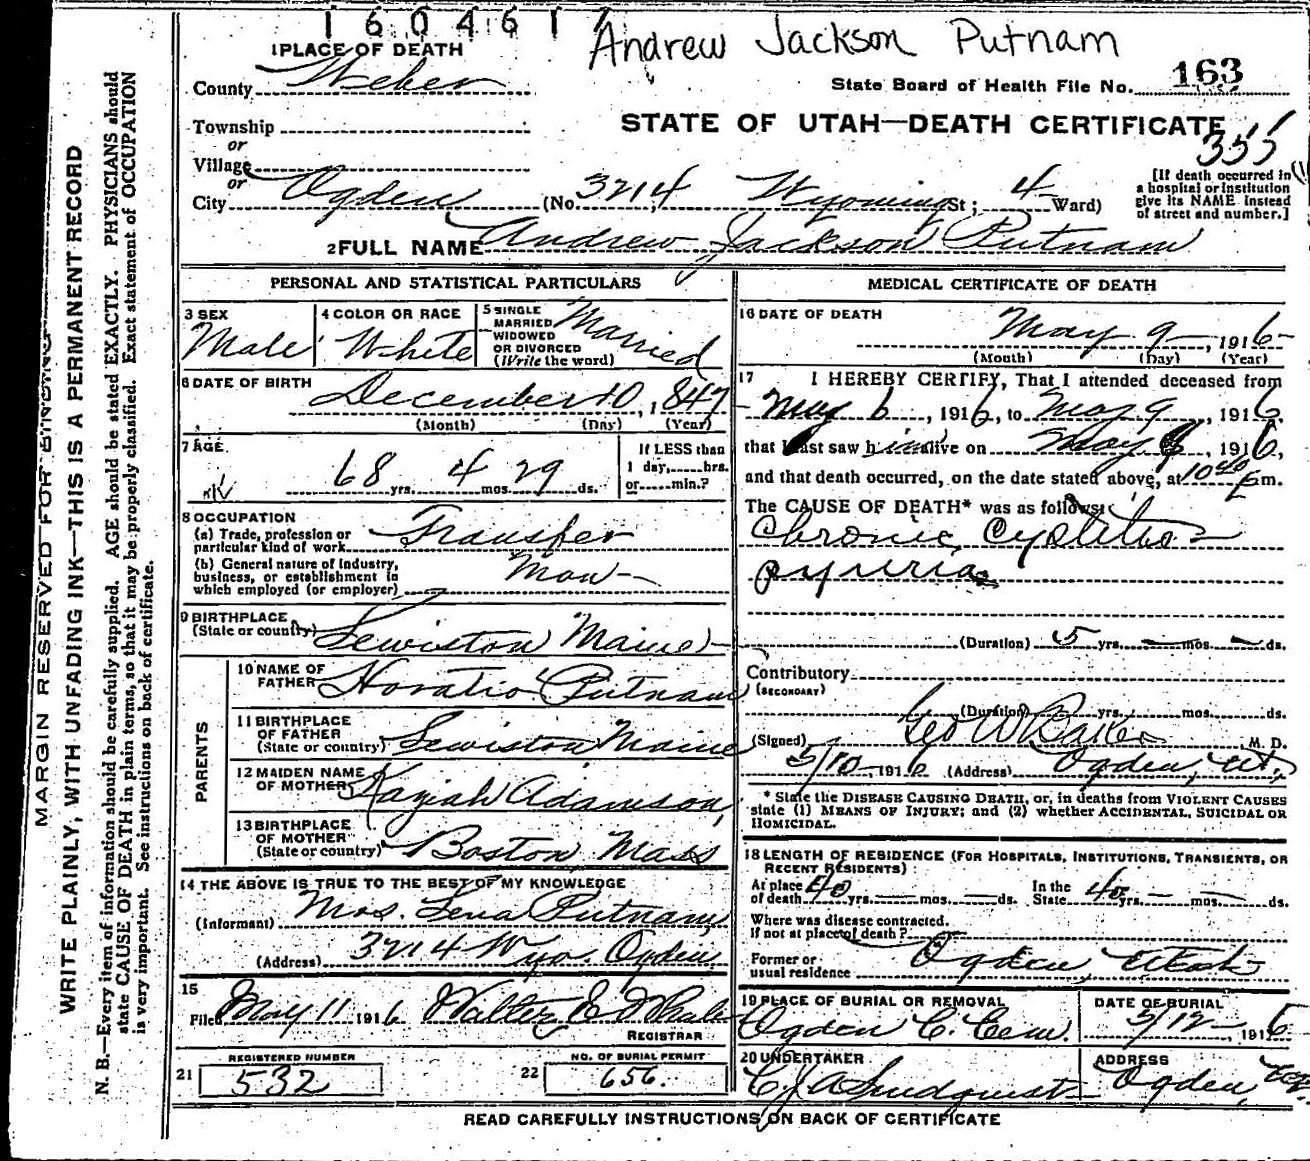 1604617
Andrew Jackson Putnam
1 PLACE OF DEATH
County Weber
State Board of Health File No. 163
Township
or
STATE OF UTAH—DEATH CERTIFICATE
355
Village
or
City Ogden (No. 3214 Wyoming St; 4 Ward)
[If death occurred in
a hospital or institution
give its NAME instead
of street and number.]
2 FULL NAME Andrew Jackson Putnam
PERSONAL AND STATISTICAL PARTICULARS
3 SEX
Male
4 COLOR OR RACE
White
5 SINGLE
MARRIED
WIDOWED
OR DIVORCED
(Write the word)
Married
6 DATE OF BIRTH
December 10, 1847
(Month) (Day) (Year)
7 AGE
68 yrs. 4 mos. 29 ds.
If LESS than
1 day,......hrs.
or......min.?
8 OCCUPATION
(a) Trade, profession or
particular kind of work Transfer
(b) General nature of industry,
business, or establishment in
which employed (or employer) Man
9 BIRTHPLACE
(State or country) Lewiston Maine
PARENTS
10 NAME OF
FATHER Horatio Putnam
11 BIRTHPLACE
OF FATHER
(State or country) Lewiston Maine
12 MAIDEN NAME
OF MOTHER Kaziah Adamson
13 BIRTHPLACE
OF MOTHER
(State or country) Boston Mass
14 THE ABOVE IS TRUE TO THE BEST OF MY KNOWLEDGE
(Informant) Mrs. Lena Putnam
(Address) 3214 Wyo. Ogden
15
Filed May 11 1916 Walter E Whalen
REGISTRAR
REGISTERED NUMBER
21 532
NO. OF BURIAL PERMIT
22 656.
MEDICAL CERTIFICATE OF DEATH
16 DATE OF DEATH
May 9, 1916
(Month) (Day) (Year)
17 I HEREBY CERTIFY, That I attended deceased from
May 6, 1916, to May 9, 1916
that I last saw him alive on May 9, 1916,
and that death occurred, on the date stated above, at 10 40 P m.
The CAUSE OF DEATH* was as follows:
Chronic Cystitis
pyuria
(Duration) 5 yrs. — mos. — ds.
Contributory
(SECONDARY)
(Duration) yrs. mos. ds.
(Signed) Geo W Baker M. D.
5/10, 1916 (Address) Ogden, Ut,
* State the DISEASE CAUSING DEATH, or, in deaths from VIOLENT CAUSES
state (1) MEANS OF INJURY; and (2) whether ACCIDENTAL, SUICIDAL OR
HOMICIDAL.
18 LENGTH OF RESIDENCE (FOR HOSPITALS, INSTITUTIONS, TRANSIENTS, OR
RECENT RESIDENTS)
At place
of death 40 yrs. — mos. — ds.
In the
State 40 yrs. — mos. — ds.
Where was disease contracted.
If not at place of death?
Former or
usual residence Ogden, Utah
19 PLACE OF BURIAL OR REMOVAL
Ogden C. Cem.
DATE OF BURIAL
5/12, 1916
20 UNDERTAKER
ADDRESS
Ogden,
READ CAREFULLY INSTRUCTIONS ON BACK OF CERTIFICATE
MARGIN RESERVED FOR BINDING
WRITE PLAINLY, WITH UNFADING INK—THIS IS A PERMANENT RECORD
N. B.—Every item of information should be carefully supplied. AGE should be stated EXACTLY. PHYSICIANS should
state CAUSE OF DEATH in plain terms, so that it may be properly classified. Exact statement of OCCUPATION
is very important. See instructions on back of certificate.